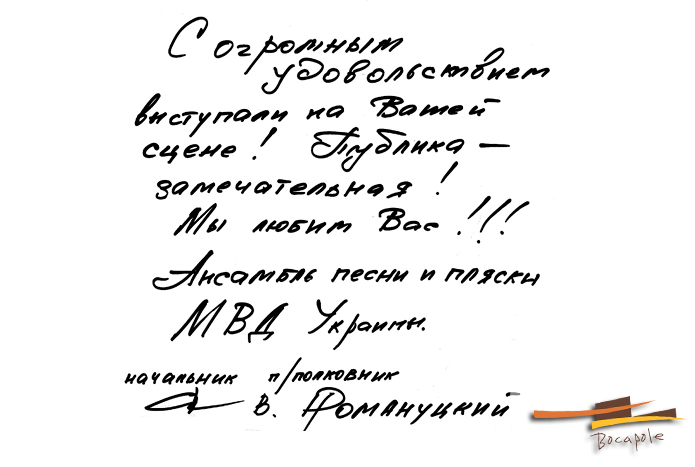 С огромным
удовольствием
выступали на Вашей
сцене! Публика —
замечательная!
Мы любим Вас!!!
Ансамбль песни и пляски
МВД Украины.
начальник п/полковник
В. Романуцкий
Bocapole